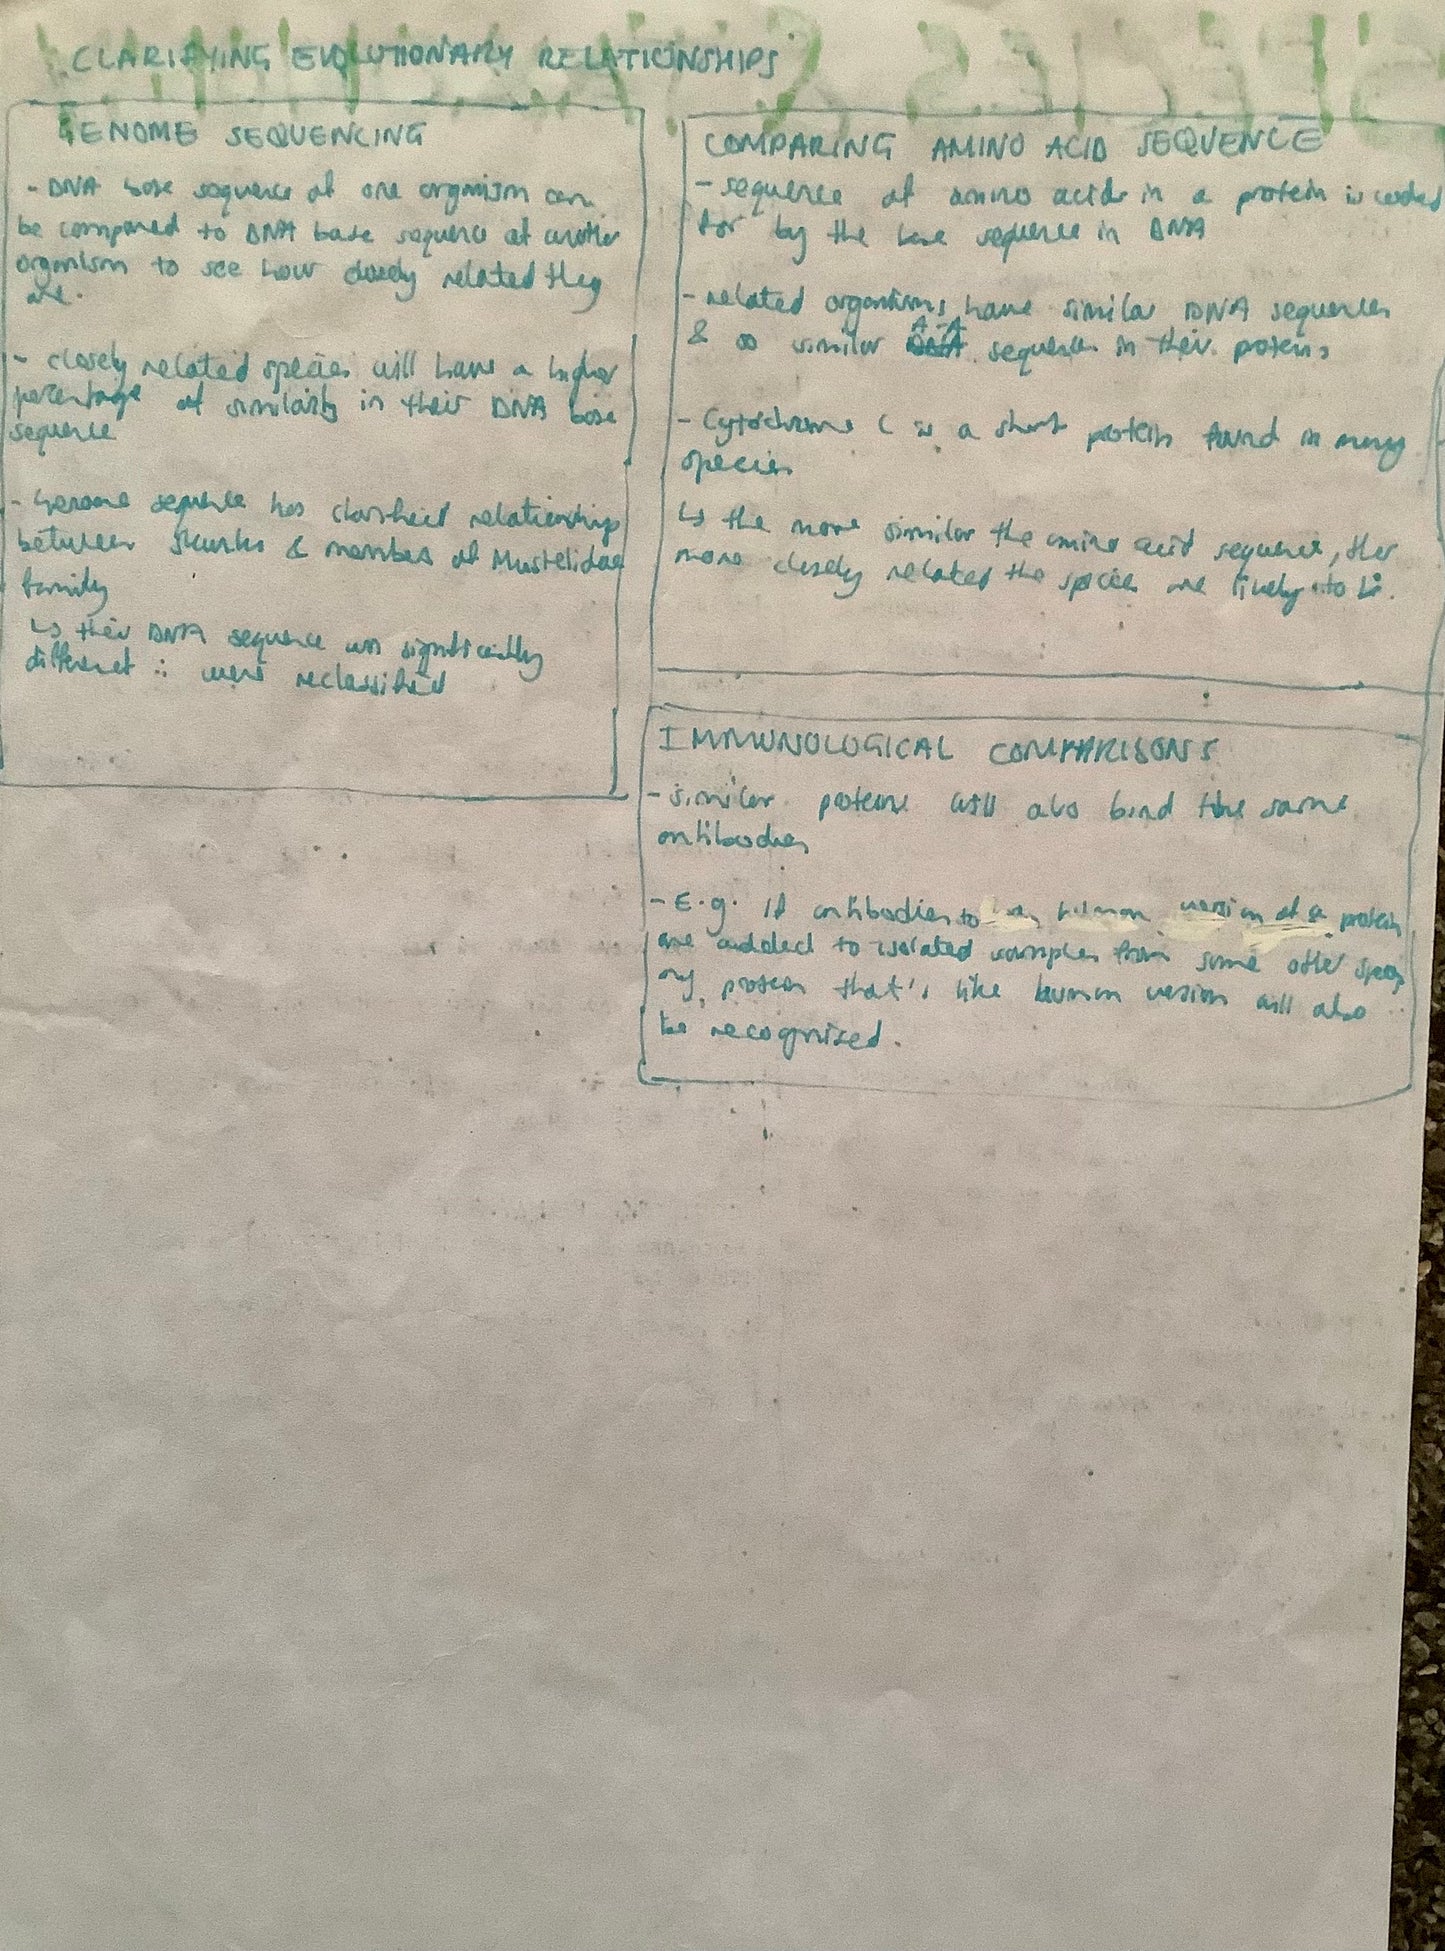 CLARIFYING EVOLUTIONARY RELATIONSHIPS
GENOME SEQUENCING
- DNA base sequence of one organism can
be compared to DNA base sequence of another
organism to see how closely related they
are.
- closely related species will have a higher
percentage of similarity in their DNA base
sequence
- Genome sequence has clarified relationship
between skunks & members of Mustelidae
family
↳ their DNA sequence was significantly
different ∴ were reclassified
COMPARING AMINO ACID SEQUENCE
- sequence of amino acids in a protein is coded
for by the base sequence in DNA
- related organisms have similar DNA sequences
& so similar A-A sequences in their proteins
- Cytochrome C is a short protein found in many
species
↳ the more similar the amino acid sequence, the
more closely related the species are likely to be.
IMMUNOLOGICAL COMPARISONS
- similar proteins will also bind the same
antibodies
- E.g. if antibodies to human version of a protein
are added to isolated samples from some other species
any protein that's like human version will also
be recognised.